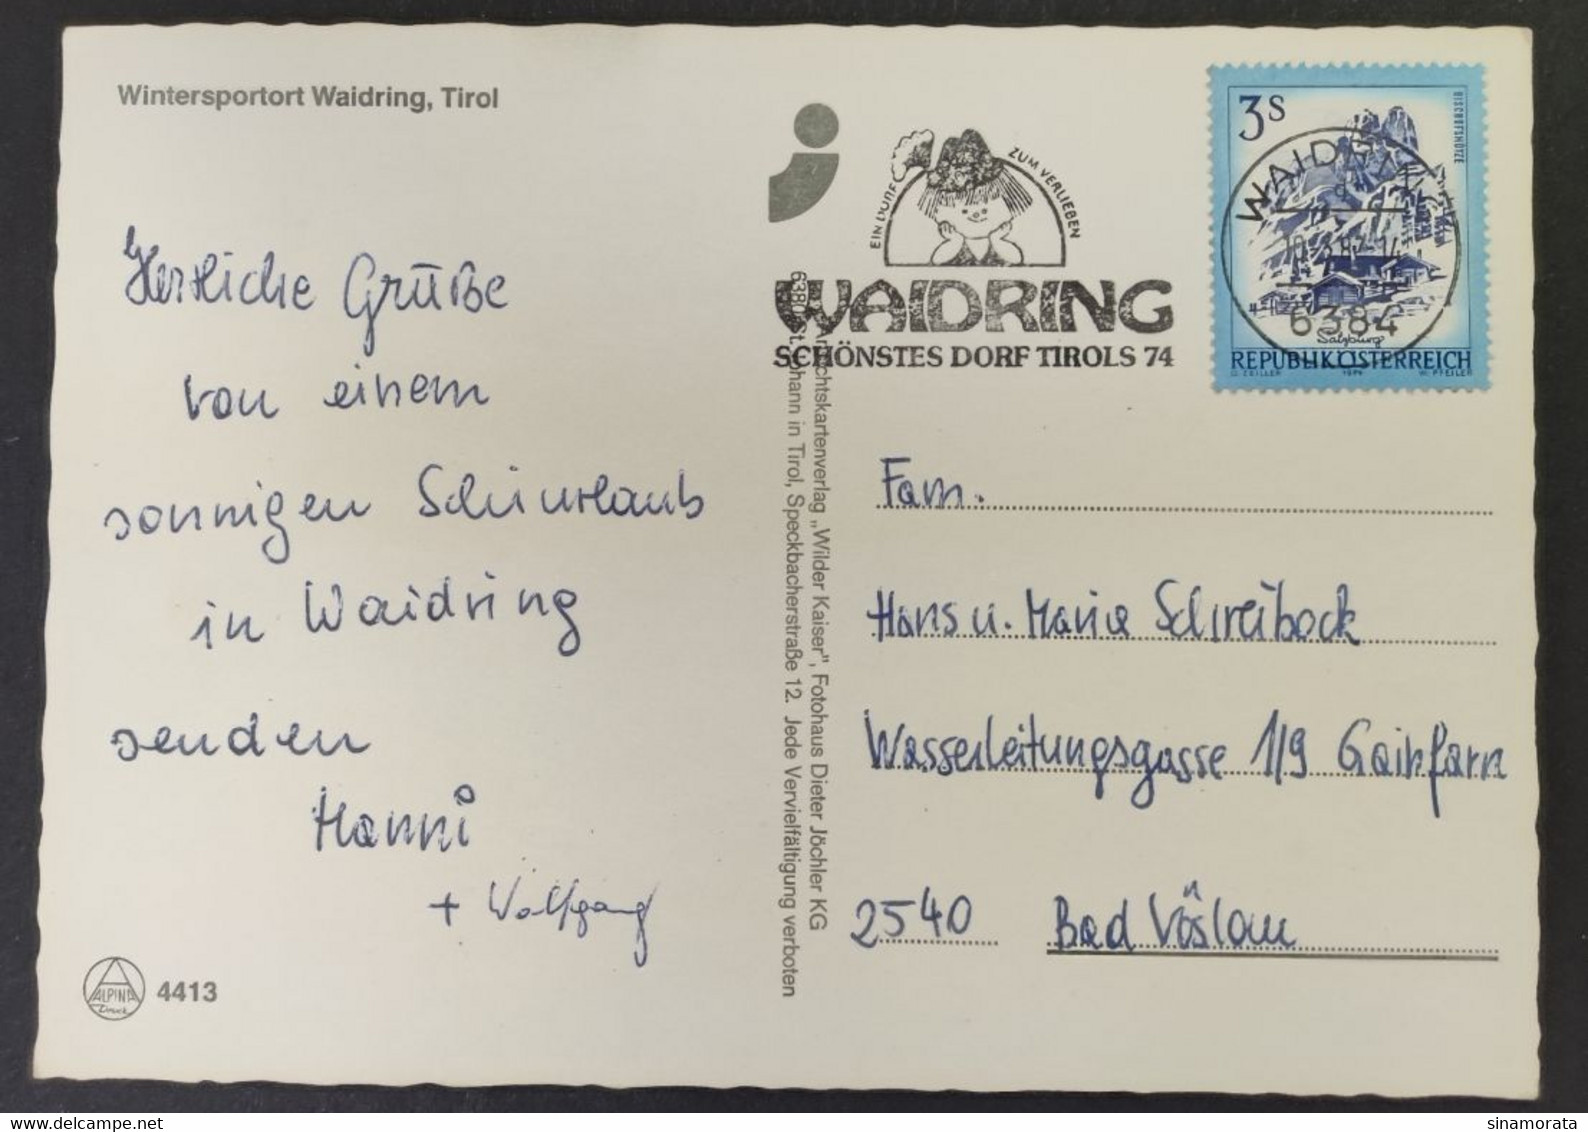 Wintersportort Waidring, Tirol
Herzliche Grüße
von einem
sonnigen Schiurlaub
in Waidring
senden
Hanni
+ Wolfgang
ALPINA
Druck
4413
Ansichtskartenverlag „Wilder Kaiser", Fotohaus Dieter Jöchler KG
6380 St. Johann in Tirol, Speckbacherstraße 12. Jede Vervielfältigung verboten
EIN DORF ZUM VERLIEBEN
WAIDRING
SCHÖNSTES DORF TIROLS 74
3S
BISCHOFSMÜTZE
WAIDRING
6384
Salzburg
REPUBLIK ÖSTERREICH
O. ZEILLER 1974 W. PFEILER
Fam.
Hans u. Maria Schreibock
Wasserleitungsgasse 1/9 Gainfarn
2540 Bad Vöslau
sinamorata